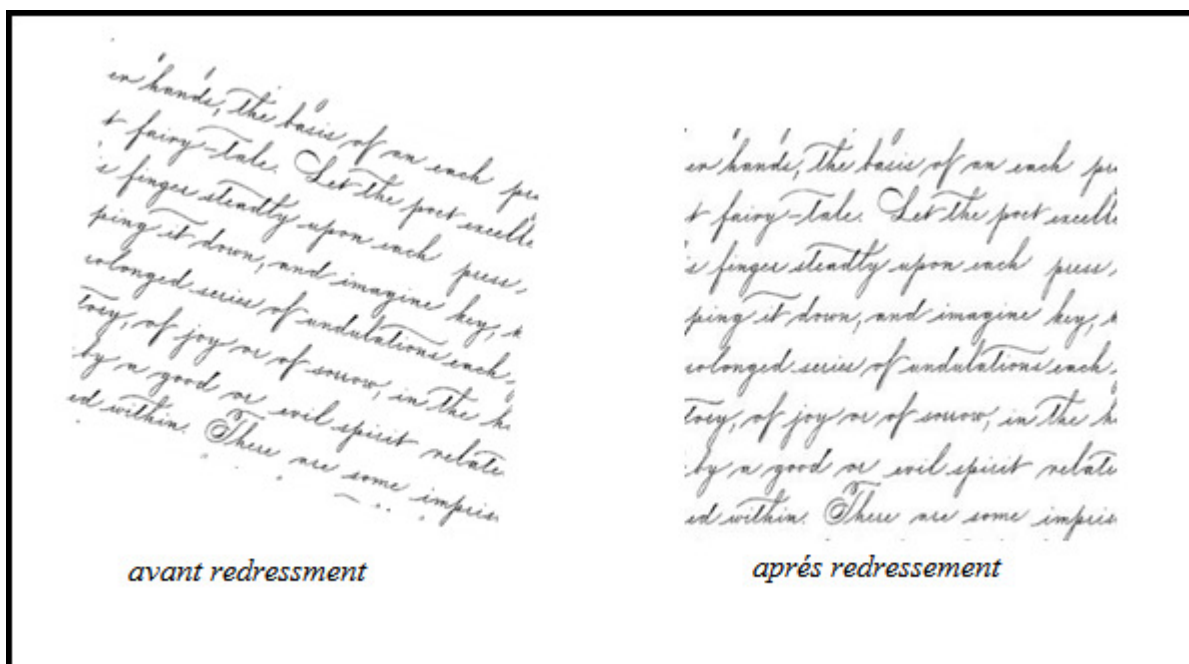 en hands, the basis of an each pre
t fairy-tale. Let the poet excelle
's finger steadty upon each press,
ping it down, and imagine key,
rolonged series of undulations each,
tosy, of joy or of sorrow, in the h
by a good or evil spirit relate
ed within. There are some impris
avant redressment
en hands, the basis of an each pre
t fairy-tale. Let the poet excelle
's finger steadty upon each press,
ping it down, and imagine key,
rolonged series of undulations each,
tosy, of joy or of sorrow, in the h
by a good or evil spirit relate
ed within. There are some impris
aprés redressement